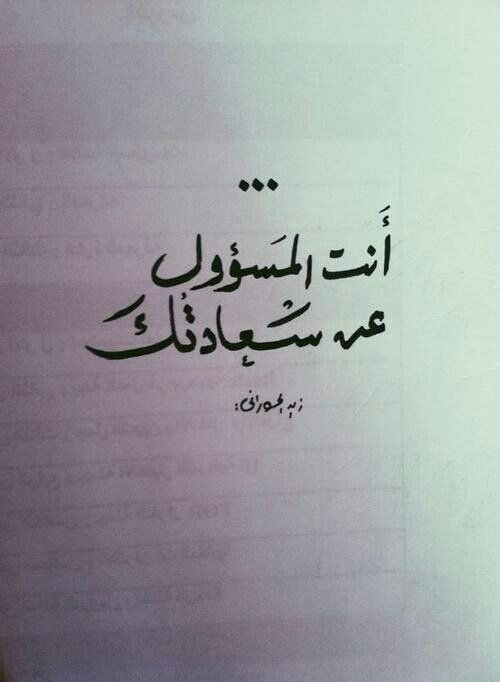 ...
أَنت المَسؤول
عن سَعادتُك
زيد الحوراني: